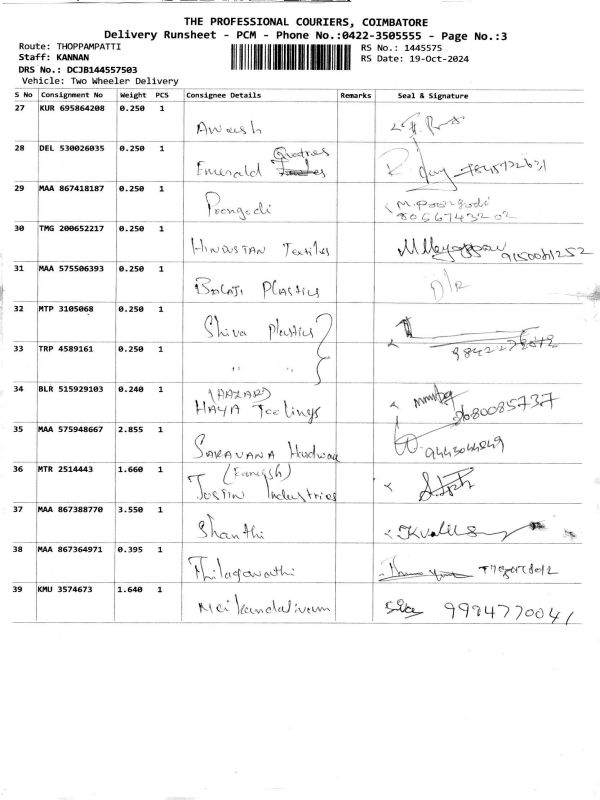 THE PROFESSIONAL COURIERS, COIMBATORE
Delivery Runsheet - PCM - Phone No.:0422-3505555 - Page No.:3
Route: THOPPAMPATTI RS No.: 1445575
Staff: KANNAN RS Date: 19-Oct-2024
DRS No.: DCJB144557503
Vehicle: Two Wheeler Delivery
S No Consignment No Weight PCS Consignee Details Remarks Seal & Signature
27 KUR 695864208 0.250 1
28 DEL 530026035 0.250 1
Emerald
29 MAA 867418187 0.250 1 M.Poongodi
Poongodi
30 TMG 200652217 0.250 1
HINDUSTAN Textiles 9150061252
31 MAA 575506393 0.250 1
Balaji Plastics
32 MTP 3105068 0.250 1
Shiva Plastics
33 TRP 4589161 0.250 1
" "
34 BLR 515929103 0.240 1
HAYA Toolings 9680085737
35 MAA 575948667 2.855 1
SARAVANA Hardware
36 MTR 2514443 1.660 1
Justin Industries
37 MAA 867388770 3.550 1
Shanthi
38 MAA 867364971 0.395 1
Thilagavathi
39 KMU 3574673 1.640 1
Meikandalivam 9994770041